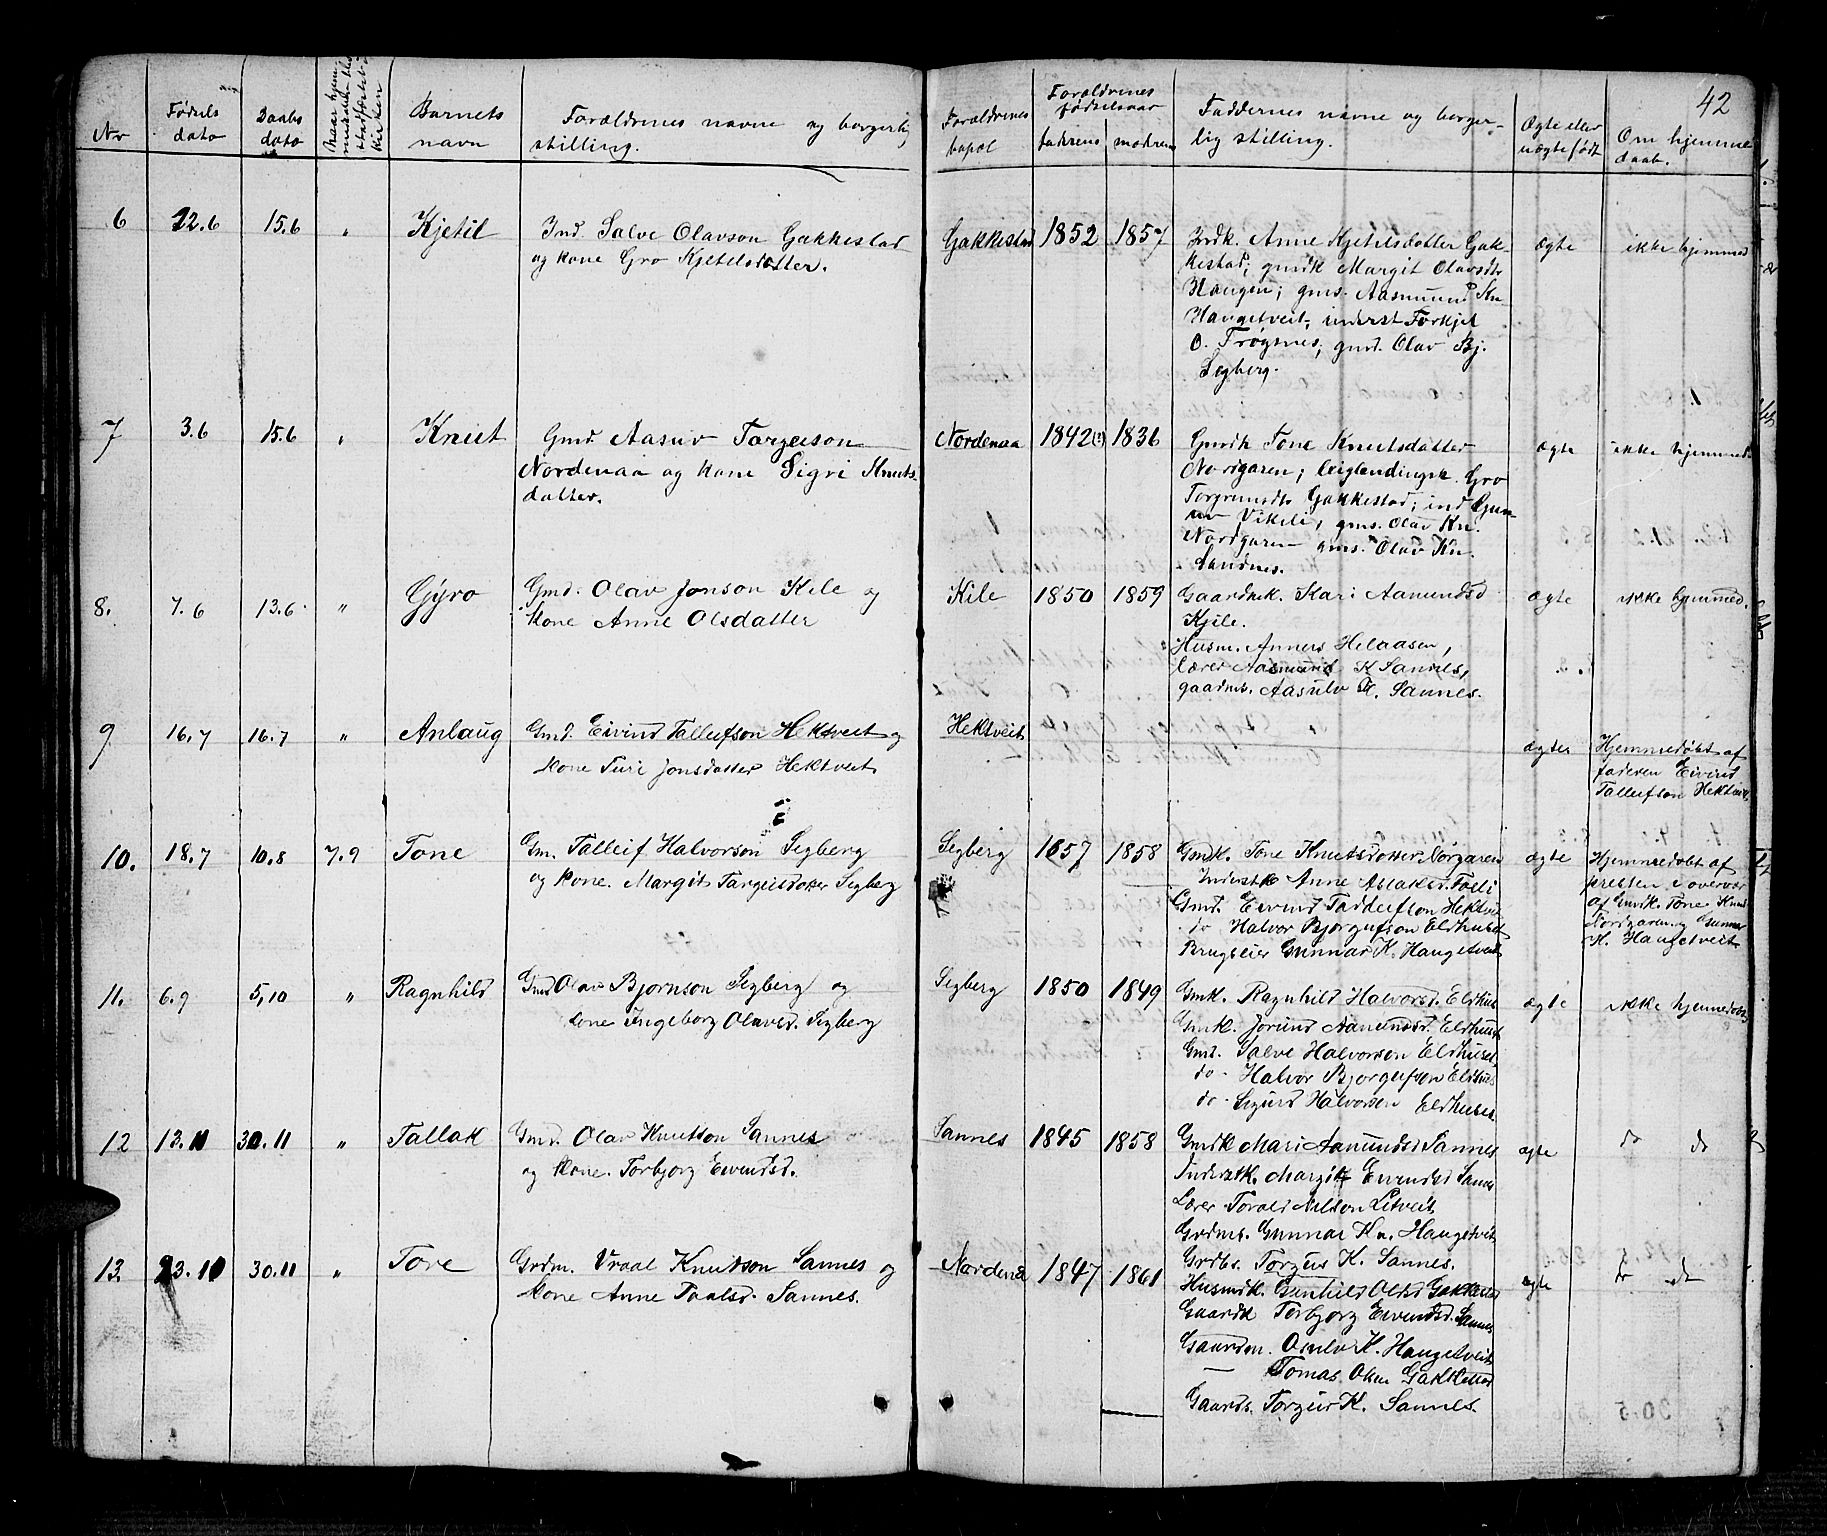 42
Nr
Fødsels dato
Daabs dato
Naar hjemmedaaben blev stadfæstet i kirken
Barnets navn
Forældrenes navne og borgerlig stilling.
Forældrenes bopæl
Forældrenes fødselsaar
faderens
moderens
Faddernes navne og borgerlig stilling.
Ægte eller uægte født
Om hjemmedaab.
6 12.6 15.6 " Kjetil
Ind. Salve Olavson Gakkestad
og kone Gro Kjetelsdatter.
Gakkestad 1852 1857
Indk. Anne Kjetelsdatter Gak-
kestad; gmdk Margit Olavsdtr
Haugen; gms. Aasmund Kn
Haugetveit, inderst Torkjel
O. Trøgsnes, gmd. Olav Bj.
Segberg.
ægte ikke hjemmed
7 3.6 15.6 " Knut
Gmd. Aasuv Targeison
Nordenaa og kone Sigri Knuts-
datter.
Nordenaa 1842(?) 1836
Gmdk Tone Knutsdatter
Nordgaren; Gro
Torgrimsdtr Gakkestad; ind Gun-
nuv Vikili, gms. Olav Kn.
Nordgaren gms. Olav Kn
Sandnes.
ægte ikke hjemmed.
8. 7.6 13.6 " Gyro
Gmd. Olav Jonson Kile og
Kone Anne Olsdatter
Kile 1850 1859
Gaardmk. Kari Aamundsd
Kjile.
Husm. Anners Helaasen,
Lærer Aasmund K Sannes,
gaardms. Aasulv K. Sannes.
ægte ikke hjemmed.
9 16.7 16.7 " Anlaug
Gmd. Eivind Talleifson Hektveit og
kone Turi Jonsdatter Hektveit
Hektveit
ægte
Hjemmedøbt af
faderen Eivind
Talleifson Hektveit.
10. 18.7 10.8 7.9 Tone
Gm. Talleif Halvorson Segberg
og kone. Margit Targeisdotter Segberg
Segberg 1857 1858
Gmdk. Tone Knutsdotter Norgaren
Inderstk Anne Aslaksd. Foeli
Gmd. Eivind Taddeifson Hektveit
do Halvor Bjorgufson Eldhuset
Brugseier Gunnar K. Haugetveit
ægte
Hjemmedøbt af
presten i overvær
af Gmdk. Tone Knud
Nordgaren og Gunnar
K. Haugetveit
11. 6.9 5.10 " Ragnhild
Gmd Olav Bjornson Segberg og
kone Ingeborg Olavsd. Segberg
Segberg 1850 1849
Gmk. Ragnhild Halvorsd. Eldhus
Gmk. Jorund Aamundsd. Eldhuset
Gmd. Salve Halvorson Eldhuset
do - Halvor Bjorgufson Eldhus
do - Sigurd Halvorsen Eldhuset
ægte ikke hjemmedøbt
12 13.11 30.11 " Tallak
Gmd. Olav Knutson Sannes
og kone. Torbjorg Eivendsd.
Sannes 1845 1858
Gmdk Mari Aamundsd Sannes
Inderstk. Margit Eivendsd Sannes
Lærer Torald Nilson Litveit
Grdms. Gunnar Kn. Haugetveit
Grdbs. Torgus K. Sannes.
ægte do do
13. 23.10 30.11 " Tore
Grdm. Vraal Knutson Sannes og
kone Anne Taalsd. Sannes.
Nordenå 1847 1861
Husmdk. Gunhild Olsd Gakkestad
Gaardk Torbjorg Eivendsd. Sannes
Gaardm. Osulv K. Haugetveit
— Tomas Olsen Gakkestad
Gaards. Torgeir K. Sannes.
ægte do do